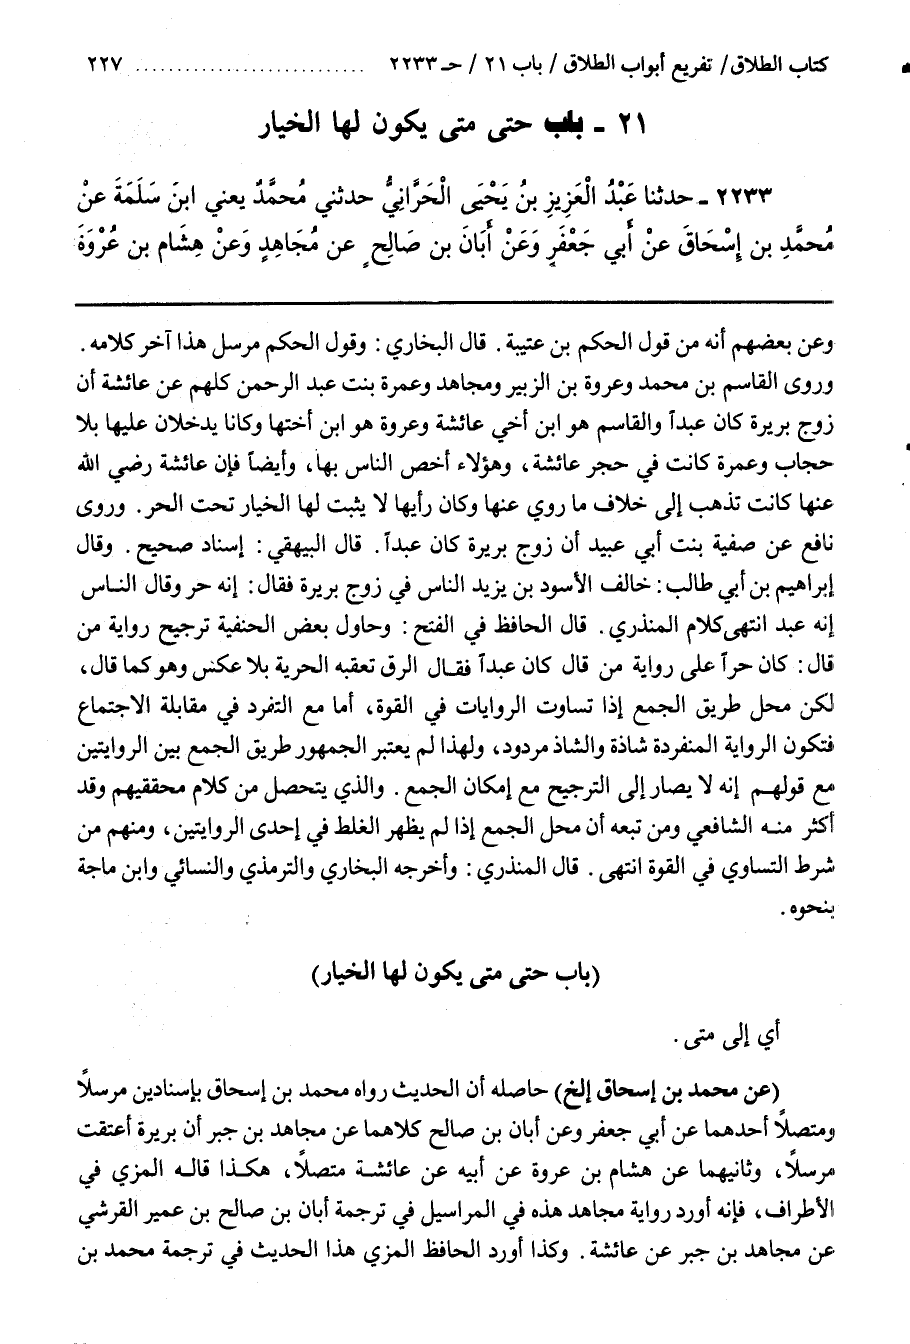 كتاب الطلاق/ تفريع أبواب الطلاق/ باب ٢١ / حـ ٢٢٣٣ ............................ ٢٢٧
٢١ ـ باب حتى متى يكون لها الخيار
٢٢٣٣ ـ حدثنا عَبْدُ الْعَزِيزِ بنُ يَحْيَى الْحَرَّانِيُّ حدثني مُحمَّدٌ يعني ابنَ سَلَمَةَ عنْ
مُحمَّدِ بن إِسْحَاقَ عنْ أَبي جَعْفَرٍ وَعَنْ أَبَانَ بن صَالِحٍ عن مُجَاهِدٍ وَعنْ هِشَام بن عُرْوَةَ
وعن بعضهم أنه من قول الحكم بن عتيبة. قال البخاري: وقول الحكم مرسل هذا آخر كلامه.
وروى القاسم بن محمد وعروة بن الزبير ومجاهد وعمرة بنت عبد الرحمن كلهم عن عائشة أن
زوج بريرة كان عبداً والقاسم هو ابن أخي عائشة وعروة هو ابن أختها وكانا يدخلان عليها بلا
حجاب وعمرة كانت في حجر عائشة، وهؤلاء أخص الناس بها، وأيضاً فإن عائشة رضي الله
عنها كانت تذهب إلى خلاف ما روي عنها وكان رأيها لا يثبت لها الخيار تحت الحر. وروى
نافع عن صفية بنت أبي عبيد أن زوج بريرة كان عبداً. قال البيهقي: إسناد صحيح. وقال
إبراهيم بن أبي طالب: خالف الأسود بن يزيد الناس في زوج بريرة فقال: إنه حر وقال الناس
إنه عبد انتهى كلام المنذري. قال الحافظ في الفتح: وحاول بعض الحنفية ترجيح رواية من
قال: كان حراً على رواية من قال كان عبداً فقال الرق تعقبه الحرية بلا عكس وهو كما قال،
لكن محل طريق الجمع إذا تساوت الروايات في القوة، أما مع التفرد في مقابلة الاجتماع
فتكون الرواية المنفردة شاذة والشاذ مردود، ولهذا لم يعتبر الجمهور طريق الجمع بين الروايتين
مع قولهم إنه لا يصار إلى الترجيح مع إمكان الجمع. والذي يتحصل من كلام محققيهم وقد
أكثر منه الشافعي ومن تبعه أن محل الجمع إذا لم يظهر الغلط في إحدى الروايتين، ومنهم من
شرط التساوي في القوة انتهى. قال المنذري: وأخرجه البخاري والترمذي والنسائي وابن ماجة
بنحوه.
(باب حتى متى يكون لها الخيار)
أي إلى متى.
(عن محمد بن إسحاق إلخ) حاصله أن الحديث رواه محمد بن إسحاق بإسنادين مرسلاً
ومتصلاً أحدهما عن أبي جعفر وعن أبان بن صالح كلاهما عن مجاهد بن جبر أن بريرة أعتقت
مرسلاً، وثانيهما عن هشام بن عروة عن أبيه عن عائشة متصلاً، هكذا قاله المزي في
الأطراف، فإنه أورد رواية مجاهد هذه في المراسيل في ترجمة أبان بن صالح بن عمير القرشي
عن مجاهد بن جبر عن عائشة. وكذا أورد الحافظ المزي هذا الحديث في ترجمة محمد بن